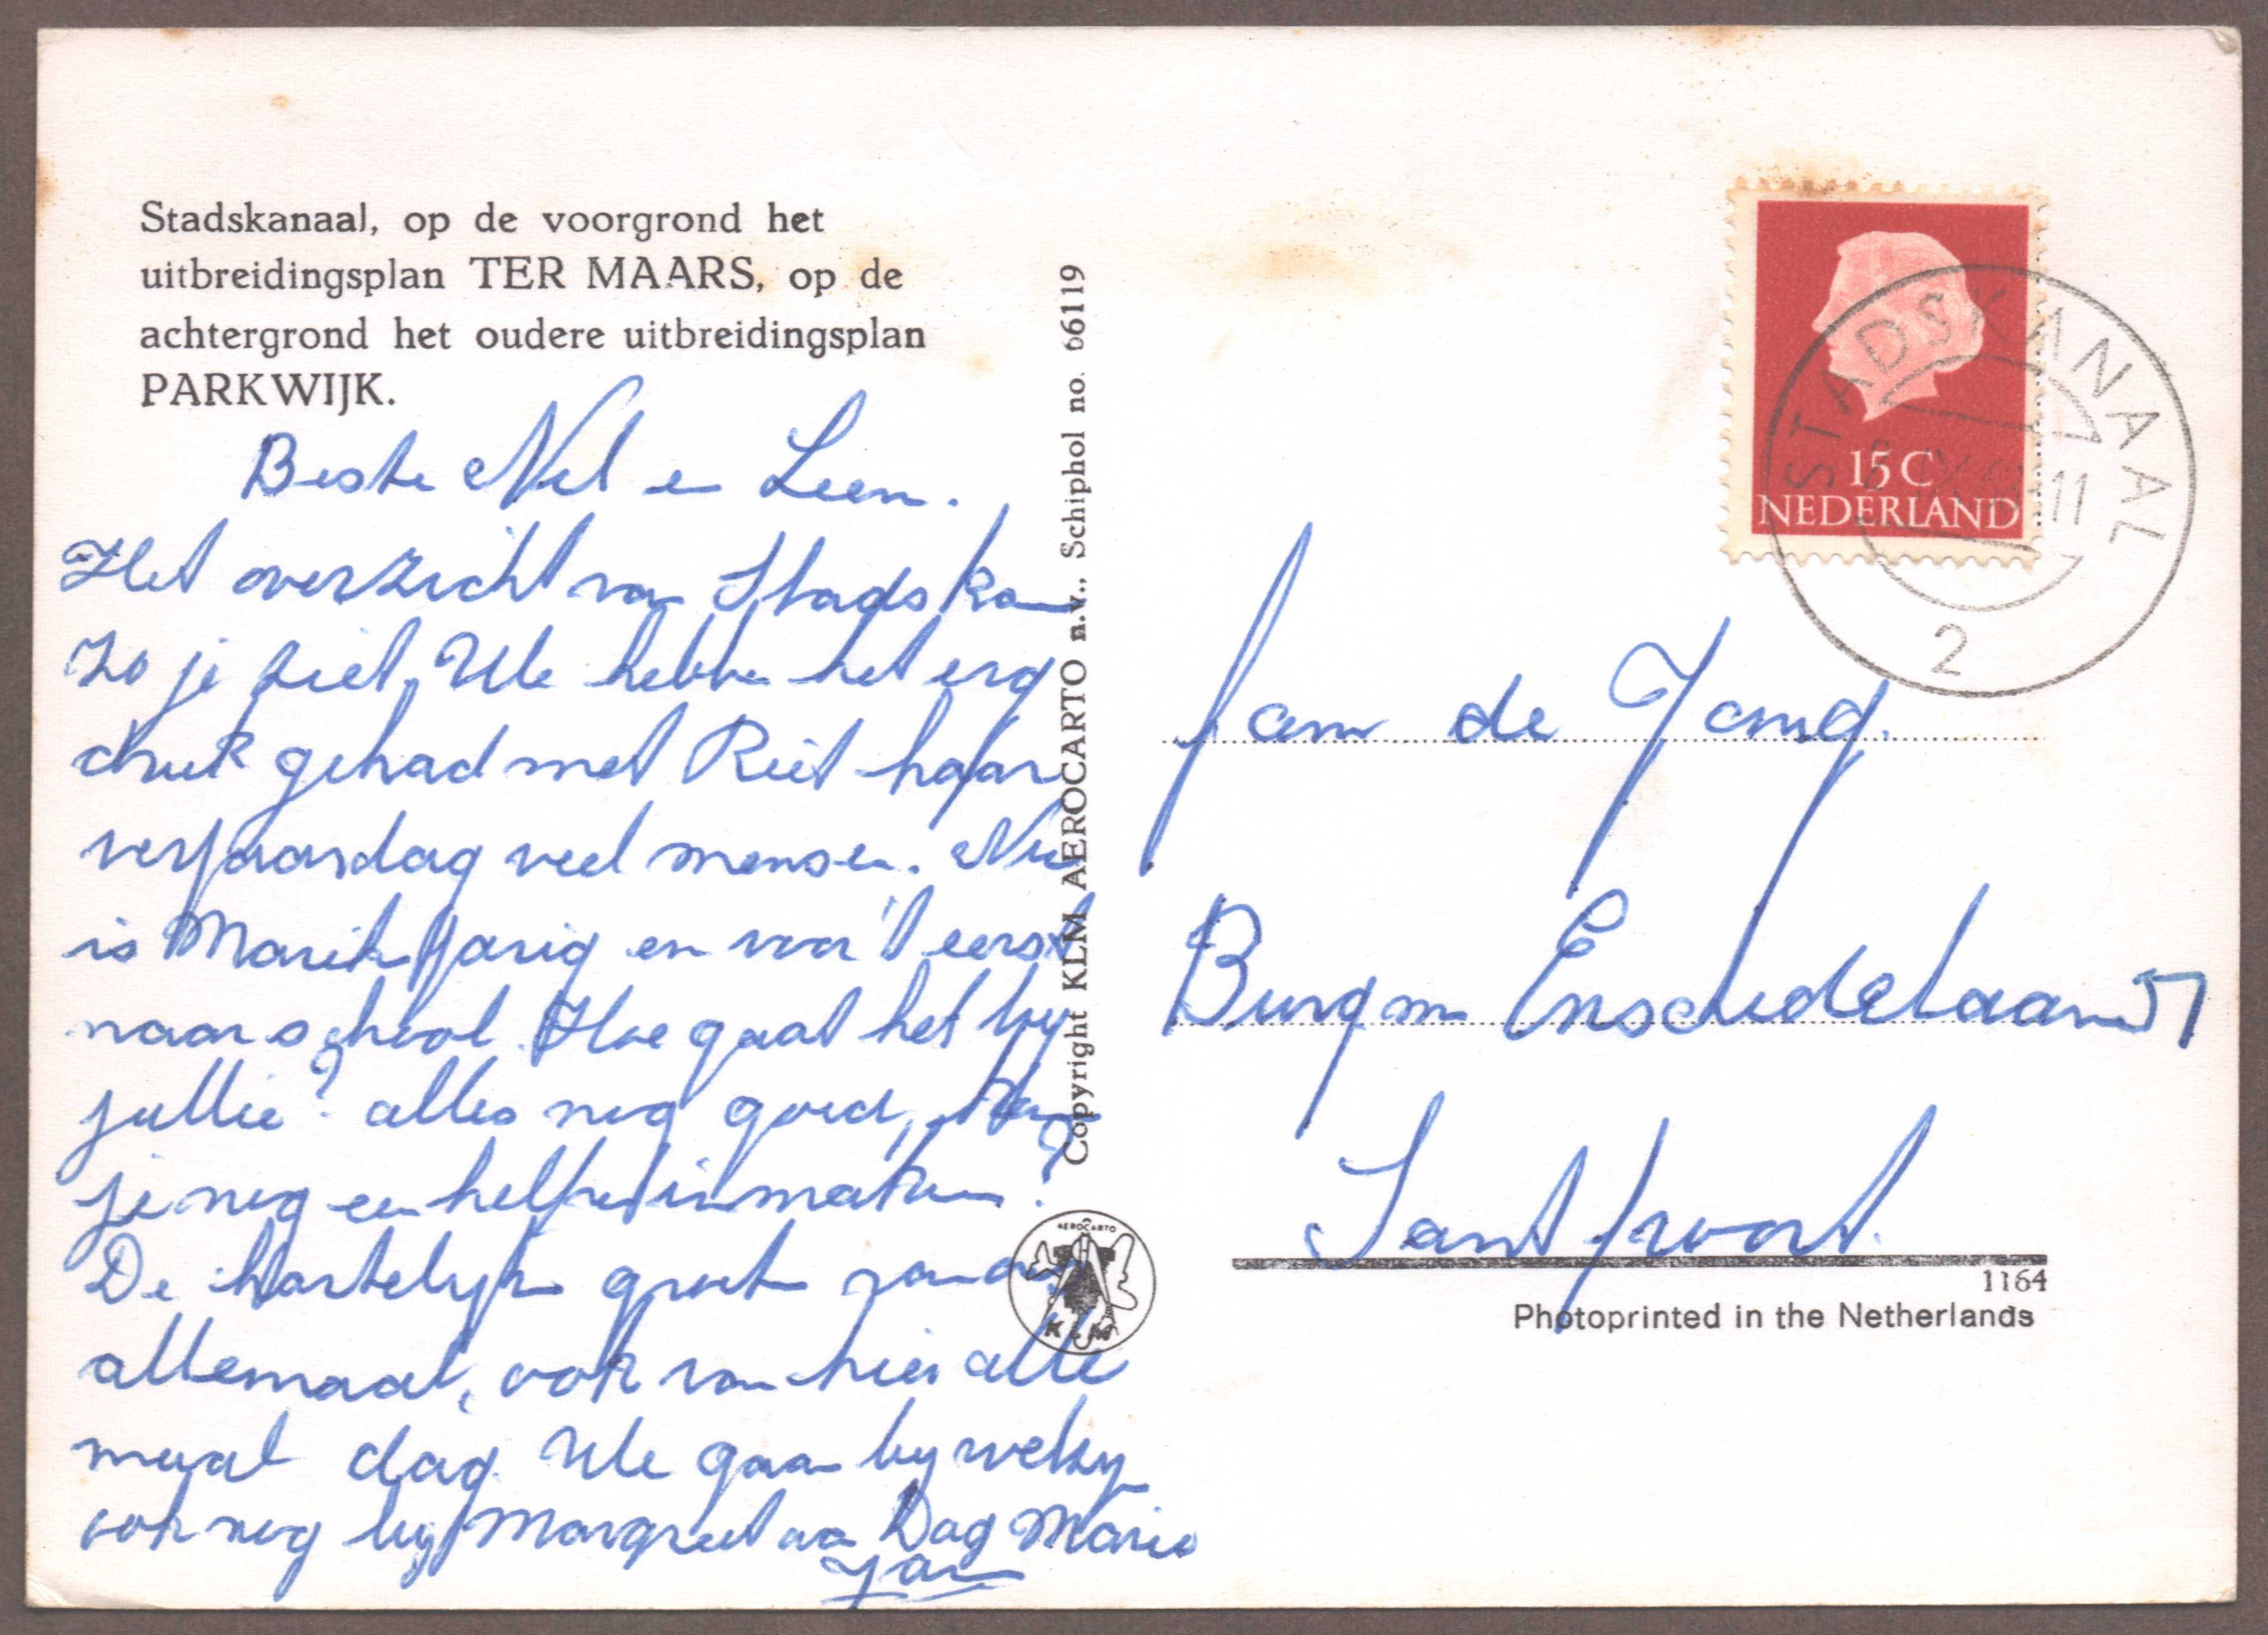 Stadskanaal, op de voorgrond het
uitbreidingsplan TER MAARS, op de
achtergrond het oudere uitbreidingsplan
PARKWIJK.
Beste Nel en Leen.
Het overzicht van Stadskan
zo je ziet. We hebben het erg
druk gehad met Riet haar
verjaardag veel mensen. Nu
is jarig en voor 't eerst
naar school. Hoe gaat het by
jullie? alles nog goed, Kan
je nog een helper in maken?
De hartelyke groeten van
allemaal, ook van hier alle
maal dag. We gaan by welzyn
ook nog by Margreet aan Dag Marie
Jan
Copyright KLM AEROCARTO n.v., Schiphol no. 66119
AEROCARTO
KLM
15 C
NEDERLAND
STADSKANAAL
11
2
fam de Jong.
Burgm Enschedelaan 57
Santpoort.
1164
Photoprinted in the Netherlands